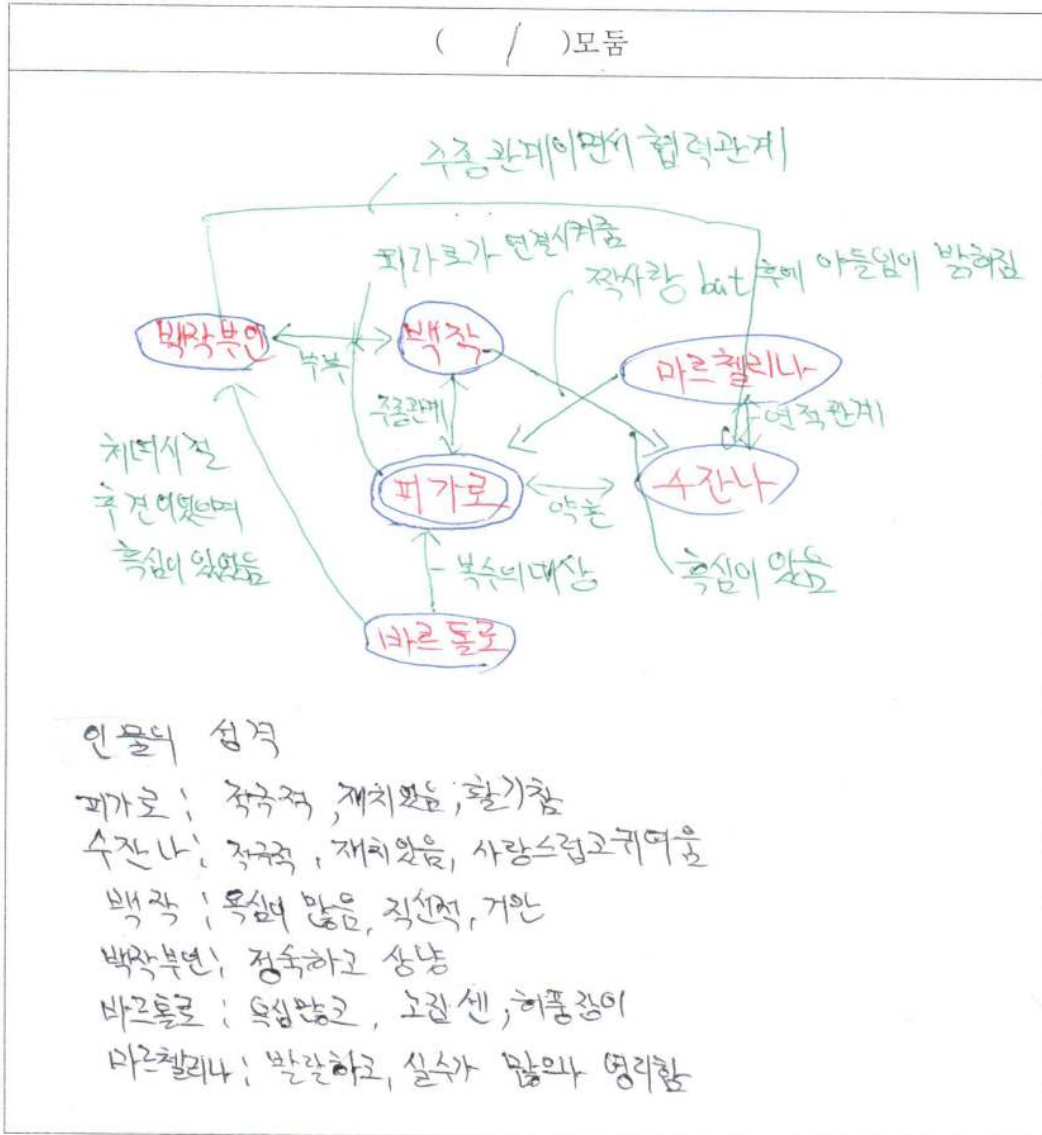 ( / )모둠
주종관계이면서 협력관계
피가로가 연결시켜줌
짝사랑 but 후에 아들임이 밝혀짐
백작부인
부부
백작
마르첼리나
주종관계
연적관계
처녀시절
후견이었으며
흑심이 있었음
피가로
약혼
수잔나
복수의 대상
흑심이 있음
바르톨로
인물의 성격
피가로; 적극적, 재치있음, 활기참
수잔나; 적극적, 재치있음, 사랑스럽고 귀여움
백작; 욕심이 많음, 직선적, 거만
백작부인; 정숙하고 상냥
바르톨로; 욕심많고, 고집 센, 허풍쟁이
마르첼리나; 발랄하고, 실수가 많으나 영리함